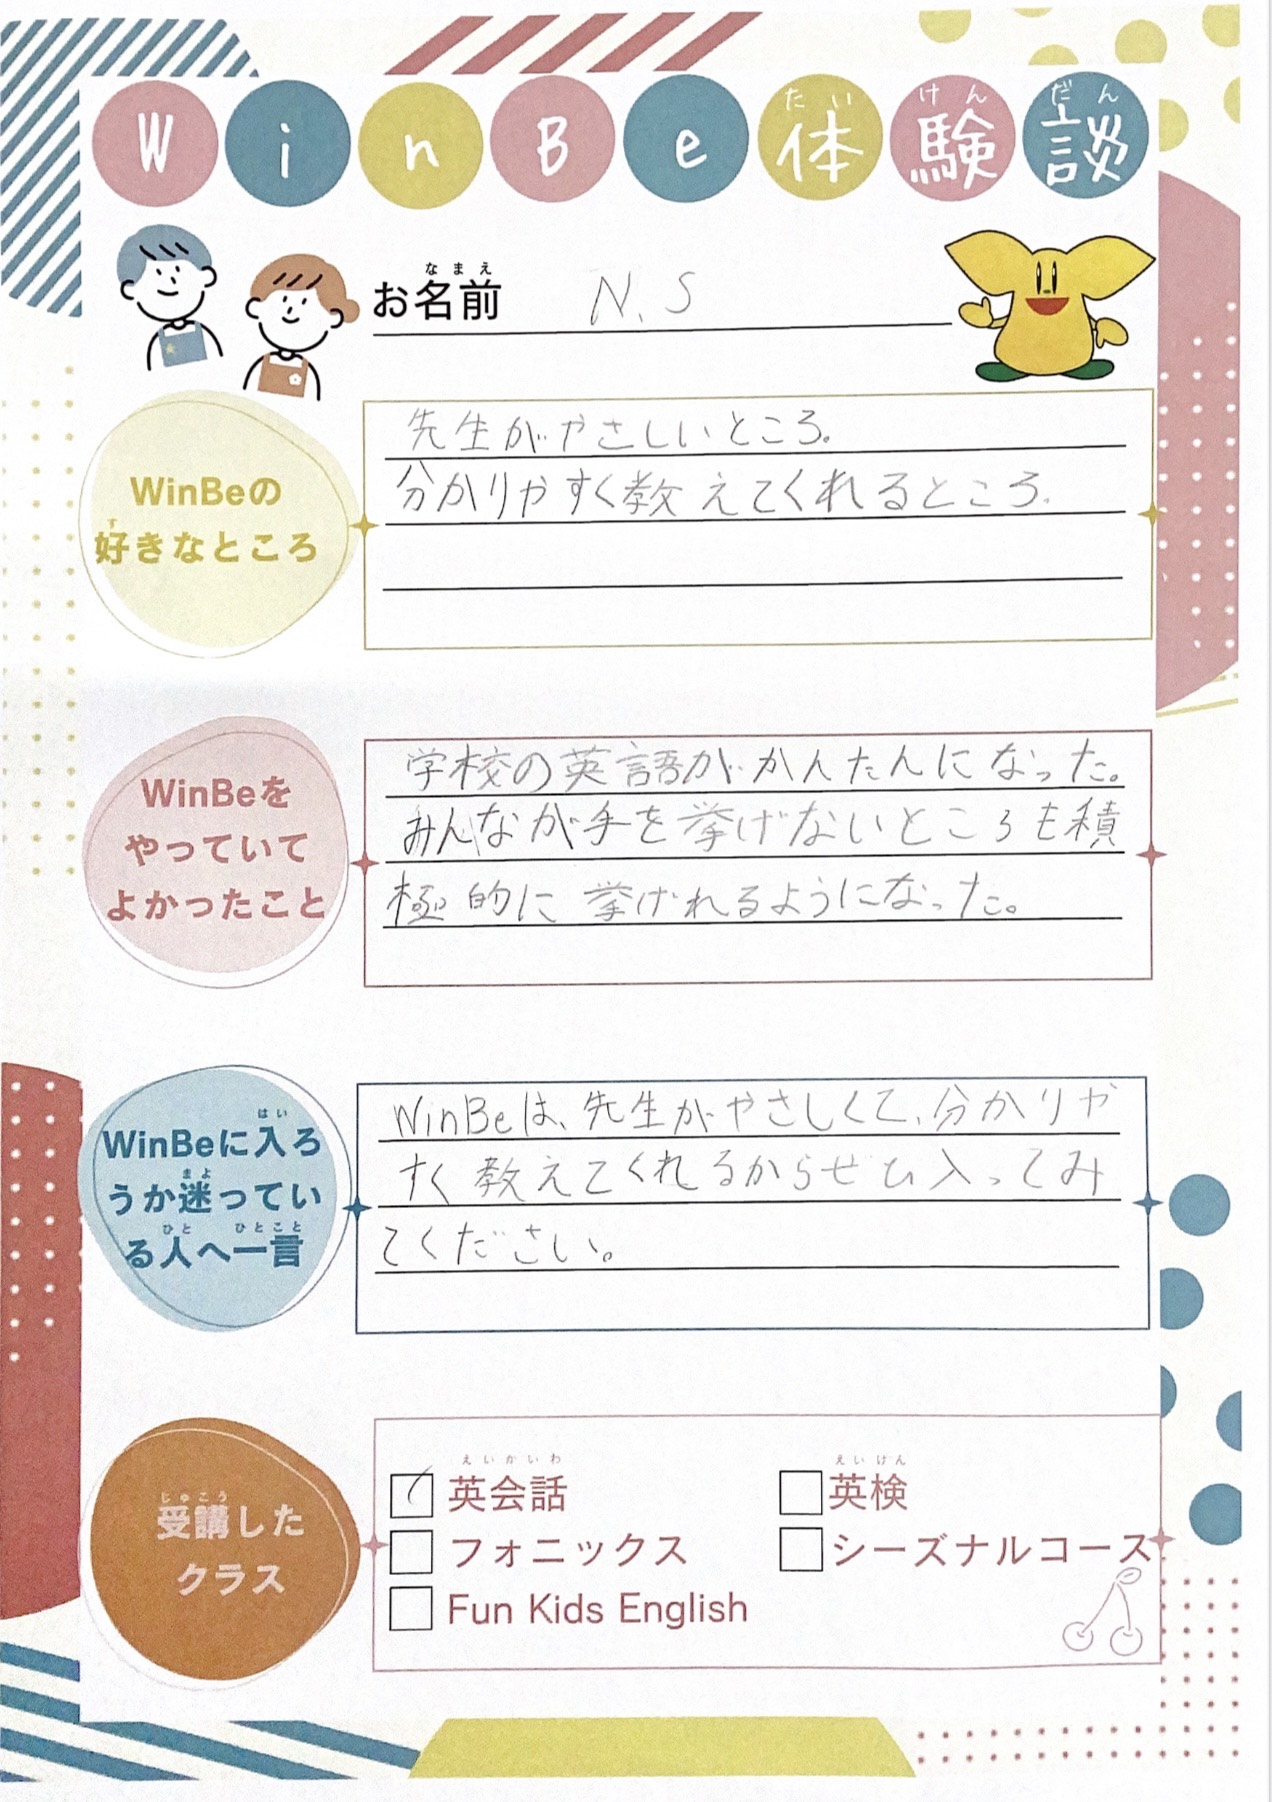 WinBe体験談
たい けん だん
なまえ
お名前 N.S
WinBeの
す
好きなところ
先生がやさしいところ。
分かりやすく教えてくれるところ。
WinBeを
やっていて
よかったこと
学校の英語がかんたんになった。
みんなが手を挙げないところも積
極的に挙げれるようになった。
はい
WinBeに入ろ
まよ
うか迷ってい
ひと ひとこと
る人へ一言
WinBeは、先生がやさしくて、分かりや
すく教えてくれるからぜひ入ってみ
てください。
じゅこう
受講した
クラス
えいかいわ
英会話
えいけん
英検
フォニックス
シーズナルコース
Fun Kids English